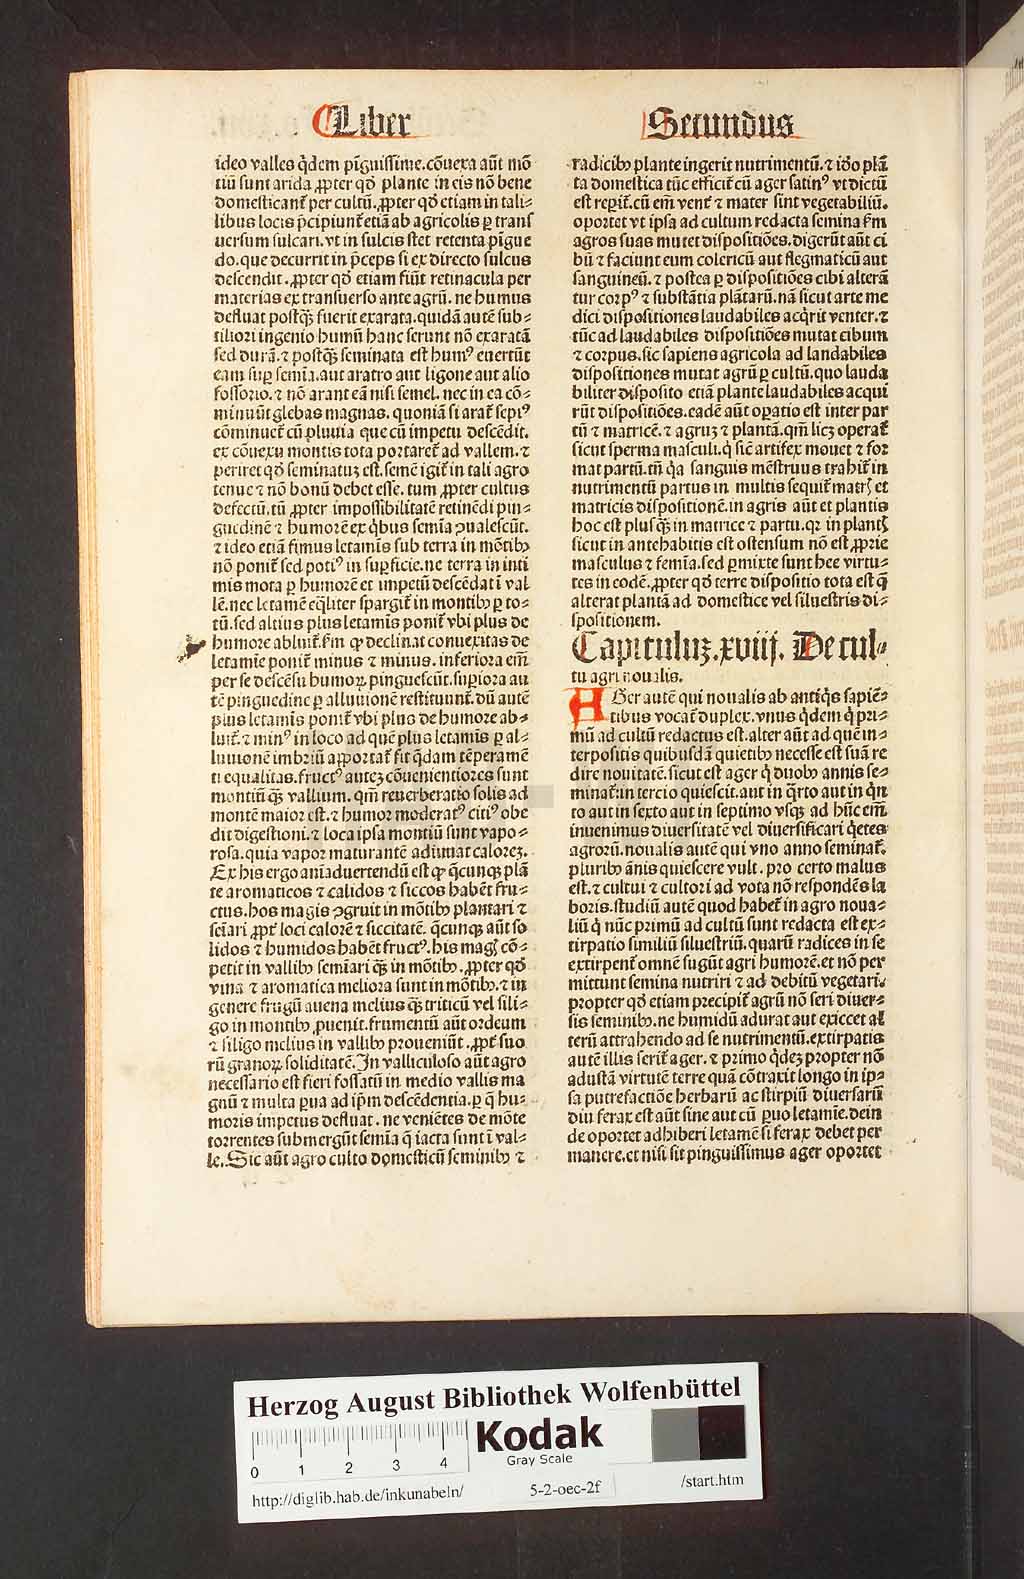 Liber
Secundus
ideo valles q̄dem pīguissime. cōuexa aūt mō
tiū sunt arida ꝓpter qđ plante in eis nō bene
domesticant̄ per cultū. ꝓpter qđ etiam in tali-
libus locis p̄cipiunt̄ etiā ab agricolis ꝑ transf
uersum sulcari. vt in sulcis stet retenta pīgue
do. que decurrit in p̄ceps si ex directo sulcus
descendit. ꝓpter qđ etiam fiūt retinacula per
materias ex transuerso ante agrū. ne humus
defluat postq̄ꝫ fuerit exarata. quidā autē sub-
tiliori ingenio humū hanc serunt nō exaratā
sed durā. ⁊ postq̄ꝫ seminata est humꝰ euertūt
eam suꝑ semīa. aut aratro aut ligone aut alio
fossorio. ⁊ nō arant eā nisi semel. nec in ea cō-
minuūt glebas magnas. quoniā si arat̄ sepiꝰ
cōminuet̄ cū pluuia que cū impetu descēdit.
ex cōuexu montis tota portaret̄ ad vallem. ⁊
periret qđ seminatuꝫ est. semē igit̄ in tali agro
tenue ⁊ nō bonū debet esse. tum ꝓpter cultus
defectū. tū ꝓpter impossibilitatē retinēdi pin-
guedinē ⁊ humorē ex q̄bus semīa ꝯualescūt.
⁊ ideo etiā fimus letamīs sub terra in mōtibꝫ
nō ponit̄ sed potiꝰ in suꝑficie. ne terra in inti
mis mota ꝑ humorē et impetū descēdat ī val
lē. nec letamē eq̄liter spargit̄ in montibꝫ ꝑ to-
tū. sed altius plus letamīs ponit̄ vbi plus de
humore abluit̄. fm̄ ꝙ declinat conuexitas de
letamīe ponit̄ minus ⁊ minus. inferiora em̄
per se descēsu humoꝝ pinguescūt. suꝑiora au
tē pinguedine ꝑ alluuionē restituunt̄. dū autē
plus letamīs ponit̄ vbi plus de humore ab-
luit̄. ⁊ minꝰ in loco ad quē plus letamīs ꝑ al-
luuionē imbriū apportat̄ fit q̄dam tēperamē
ti equalitas. fructꝰ auteꝫ cōuenientiores sunt
montiū q̄ꝫ vallium. qm̄ reuerberatio solis ad
montē maior est. ⁊ humor moderatꝰ citiꝰ obe
dit digestioni. ⁊ loca ipsa montiū sunt vapo-
rosa. quia vapor maturantē adiuuat caloreꝫ.
Ex his ergo aīaduertendū est ꝙ q̄cunqꝫ plā
te aromaticos ⁊ calidos ⁊ siccos habēt fru-
ctus. hos magis ꝯgruit in mōtibꝫ plantari ⁊
seīari ꝓpt̄ loci calorē ⁊ siccitatē. q̄cunqꝫ aūt so
lidos ⁊ humidos habēt fructꝰ. his mag̃ cō-
petit in vallibꝫ semīari q̄ꝫ in mōtibꝫ. ꝓpter qđ
vina ⁊ aromatica meliora sunt in mōtibꝫ. ⁊ in
genere frugū auena melius q̄ꝫ triticū vel sili-
go in montibꝫ ꝓuenit. frumentū aūt ordeum
⁊ siligo melius in vallibꝫ proueniūt. ꝓpt̄ suo
rū granoꝝ soliditatē. In valliculoso aūt agro
necessario est fieri fossatū in medio vallis ma
gnū ⁊ multa ꝑua ad ip̄m descēdentia. ꝑ q̄ hu-
moris impetus defluat. ne veniētes de mōte
torrentes submergūt semīa q̄ iacta sunt ī val-
le. Sic aūt agro culto domesticū seminibꝫ ⁊
radicibꝫ plante ingerit nutrimentū. ⁊ iđo plā
ta domestica tūc efficit̄ cū ager satinꝰ vt dictū
est reꝑit̄. cū em̄ vent̄ ⁊ mater sint vegetabiliū.
oportet vt ipsa ad cultum redacta semina fm̄
agros suas mutet dispositiōes. digerūt aūt ci
bū ⁊ faciunt eum colericū aut flegmaticū aut
sanguineū. ⁊ postea ꝑ dispositiōes cibi alterā
tur corpꝰ ⁊ substātia plātarū. nā sicut arte me
dici dispositiones laudabiles acq̄rit venter. ⁊
tūc ad laudabiles dispositiōes mutat cibum
⁊ corpus. sic sapiens agricola ad landabiles
dispositiones mutat agrū ꝑ cultū. quo lauda
biliter disposito etiā plante laudabiles acqui
rūt dispositiōes. eadē aūt oꝑatio est inter par
tū ⁊ matricē. ⁊ agruꝫ ⁊ plantā. qm̄ licꝫ operat̄
sicut sperma masculi. q̄ sic̄ artifex mouet ⁊ for
mat partū. tn̄ q̄a sanguis mēstruus trahit̄ in
nutrimentū partus in multis sequit̄ matr̃ et
matricis dispositionē. in agris aūt et plantis
hoc est plusq̄ꝫ in matrice ⁊ partu. qꝛ in plant̃
sicut in antehabitis est ostensum nō est ꝓprie
masculus ⁊ femīa. sed ꝑmixte sunt hee virtu-
tes in eodē. ꝓpter qđ terre dispositio tota est q̄
alterat plantā ad domestice vel siluestris di-
spositionem.
Capituluꝫ. xviij. De cul-
tu agri noualis.
AGer autē qui noualis ab antiq̄s sapiē-
tibus vocat̄ duplex. vnus q̄dem q̄ pri-
mū ad cultū redactus est. alter aūt ad quē in-
terpositis quibusdā quietibꝫ necesse est suā re
dire nouitatē. sicut est ager q̄ duobꝫ annis se-
minat̄. in tercio quiescit. aut in q̄rto aut in q̄n
to aut in sexto aut in septimo vsqꝫ ad hūc em̄
inuenimus diuersitatē vel diuersificari q̄etes
agrorū. noualis autē qui vno anno seminat̄.
pluribꝫ ānis quiescere vult. pro certo malus
est. ⁊ cultui ⁊ cultori ad vota nō respondēs la
boris. studiū autē quod habet̄ in agro noua-
liū q̄ nūc primū ad cultū sunt redacta est ex-
tirpatio similiū siluestriū. quarū radices in se
extirpent̄ omnē sugūt agri humorē. et nō per
mittunt semina nutriri ⁊ ad debitū vegetari.
propter qđ etiam precipit̄ agrū nō seri diuer-
sis seminibꝫ. ne humidū adurat aut exiccet al
terū attrahendo ad se nutrimentū. extirpatis
autē illis serit̄ ager. ⁊ primo q̄deꝫ propter nō
adustā virtutē terre quā cōtraxit longo in ip-
sa putrefactiōe herbarū ac stirpiū diuersarū
diu ferax est aūt sine aut cū ꝑuo letamīe. dein
de oportet adhiberi letamē si ferax debet per
manere. et nisi sit pinguissimus ager oportet
Herzog August Bibliothek Wolfenbüttel
0 1 2 3 4
Kodak
Gray Scale
http://diglib.hab.de/inkunabeln/
5-2-oec-2f
/start.htm